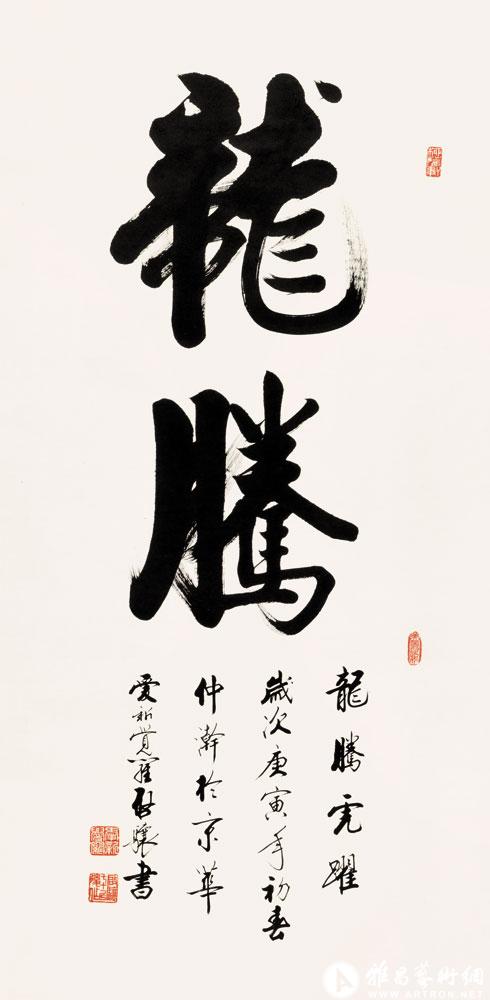 龍騰
龍騰虎躍
歲次庚寅年初春
仲瀚於京華
愛新覺羅啟驤書
雅昌藝術網
WWW.ARTRON.NET